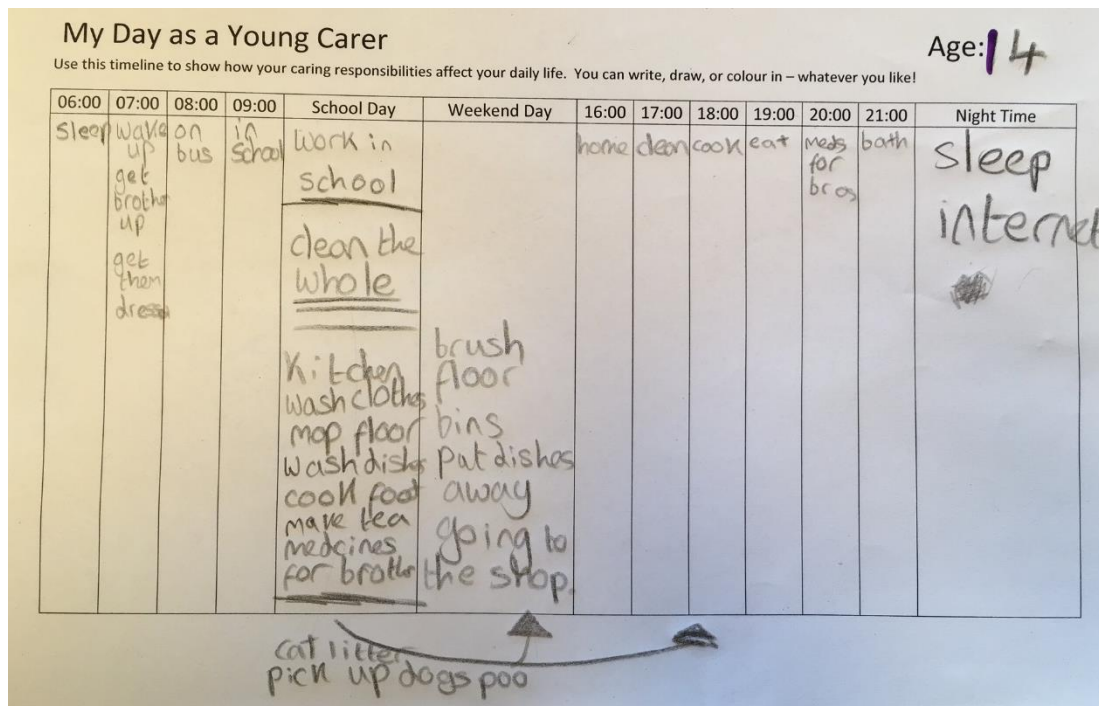 My Day as a Young Carer
Age: 14
Use this timeline to show how your caring responsibilities affect your daily life. You can write, draw, or colour in – whatever you like!
06:00 07:00 08:00 09:00 School Day Weekend Day 16:00 17:00 18:00 19:00 20:00 21:00 Night Time
sleep
wake
up
get
brothe
up
get
them
dress
on
bus
in
school
work in
school
clean the
whole
Kitchen
wash clothes
mop floor
wash dishes
cook foot
make tea
medcines
for brothe
brush
floor
bins
pat dishes
away
going to
the shop.
home
clean
cook
eat
meds
for
bros
bath
sleep
internet
cat litter
pick up dogs poo